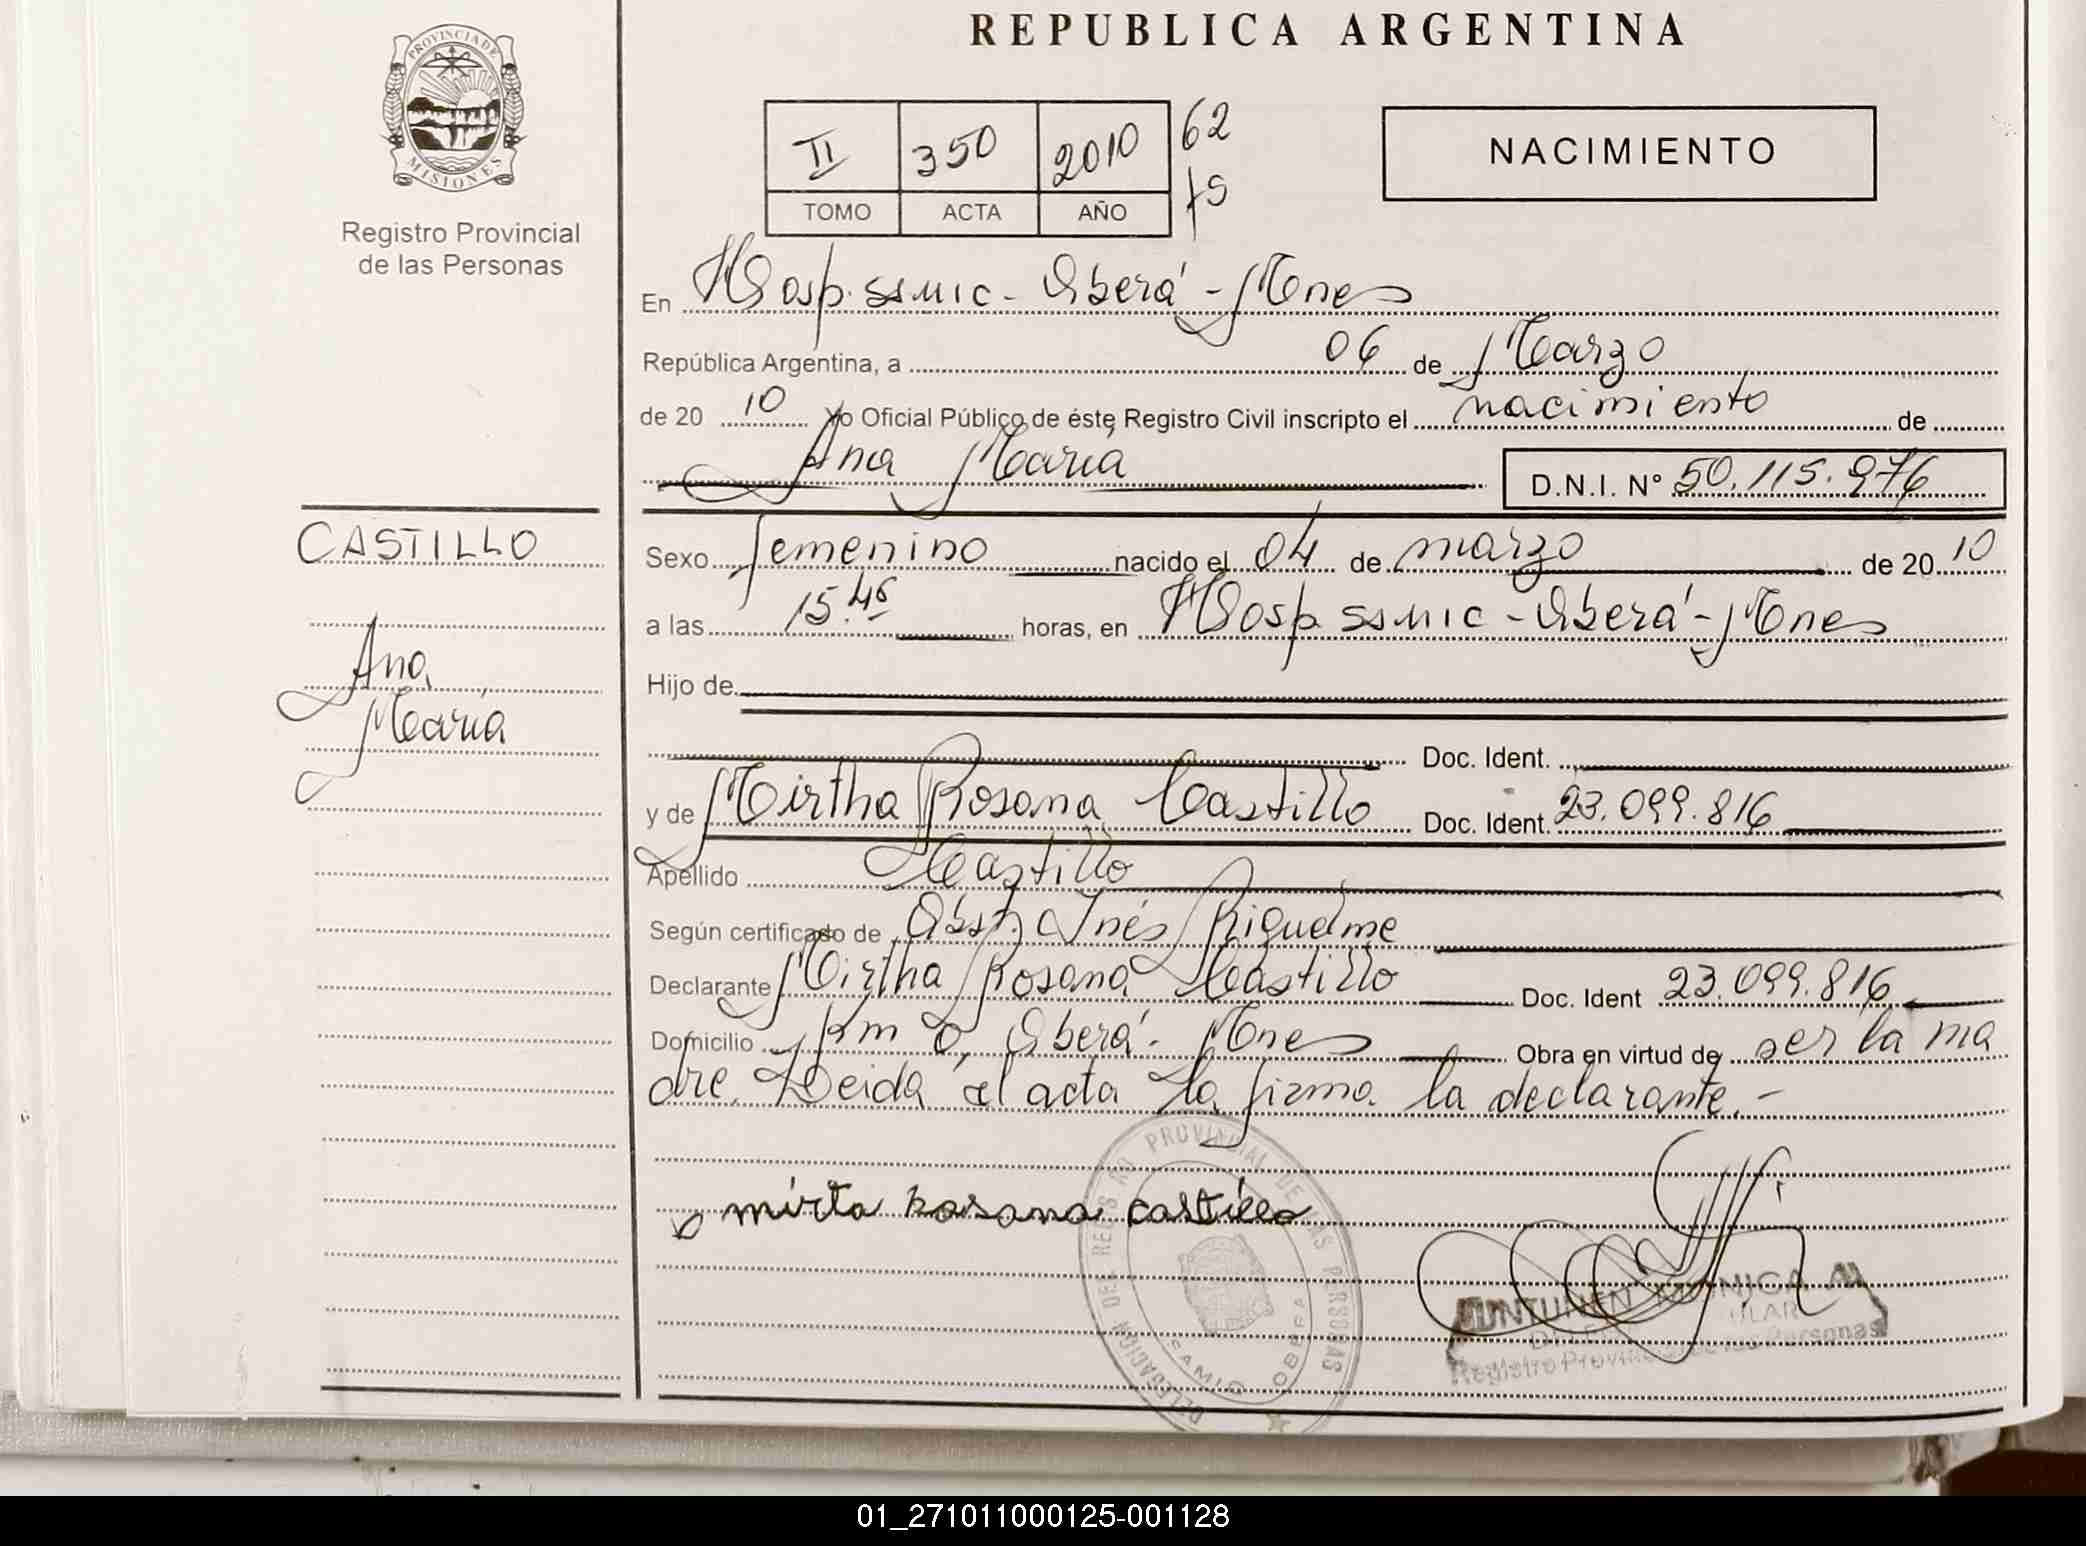 REPUBLICA ARGENTINA
PROVINCIA DE
MISIONES
Registro Provincial
de las Personas
II 350 2010 62
TOMO ACTA AÑO fs
NACIMIENTO
En Hosp. SSMIC - Oberá - Mnes
República Argentina, a 06 de Marzo
de 20 10 Yo Oficial Público de éste Registro Civil inscripto el nacimiento de
Ana María D.N.I. N° 50.115.976
CASTILLO
Ana
María
Sexo femenino nacido el 04 de marzo de 20 10
a las 15.46 horas, en Hosp. SSMIC - Oberá - Mnes
Hijo de
Doc. Ident.
y de Mirtha Rosana Castillo Doc. Ident. 23.099.816
Apellido Castillo
Según certificado de Obst. Inés Riquelme
Declarante Mirtha Rosana Castillo Doc. Ident 23.099.816
Domicilio km 0, Oberá - Mnes Obra en virtud de ser la ma
dre. Leida el acta la firma la declarante.-
mirta rosana castillo
PROVINCIAL DE LAS PERSONAS
DELEGACION DEL REGISTRO
SAMIC OBERA
MONICA
Registro Provincial de las Personas
01_271011000125-001128